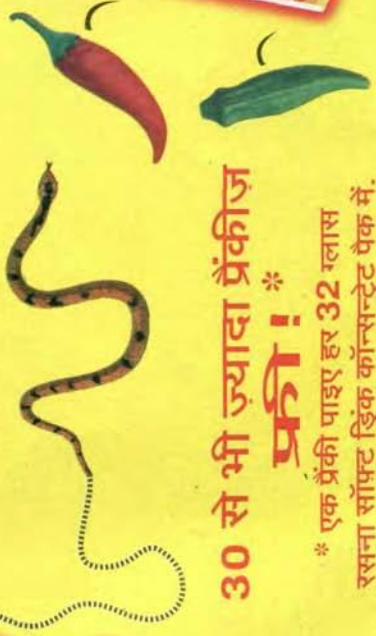 30 से भी ज़्यादा प्रैंकीज़
फ्री!*
* एक प्रैंकी पाइए हर 32 ग्लास
रसना सॉफ़्ट ड्रिंक कॉन्सन्ट्रेट पैक में.